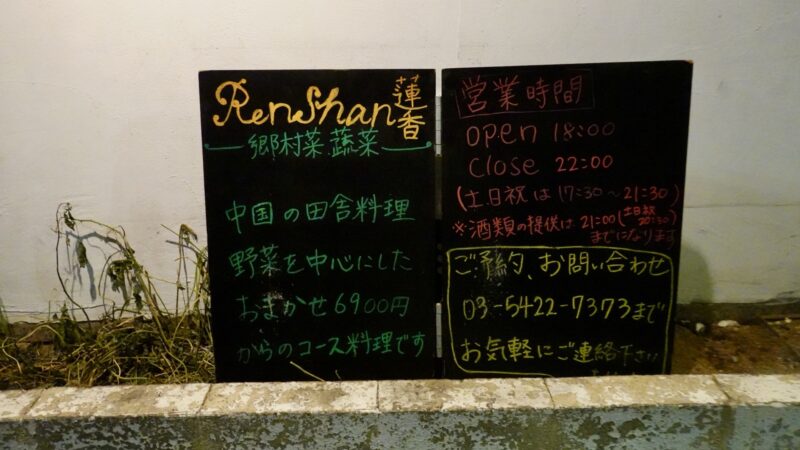 RenShan 蓮香
郷村菜蔬菜
中国の田舎料理
野菜を中心にした
おまかせ6900円
からのコース料理です
営業時間
open 18:00
Close 22:00
(土日祝は 17:30～21:30)
※酒類の提供は 21:00(土日祝 20:30)
までになります
ご予約、お問い合わせ
03-5422-7373まで
お気軽にご連絡下さい